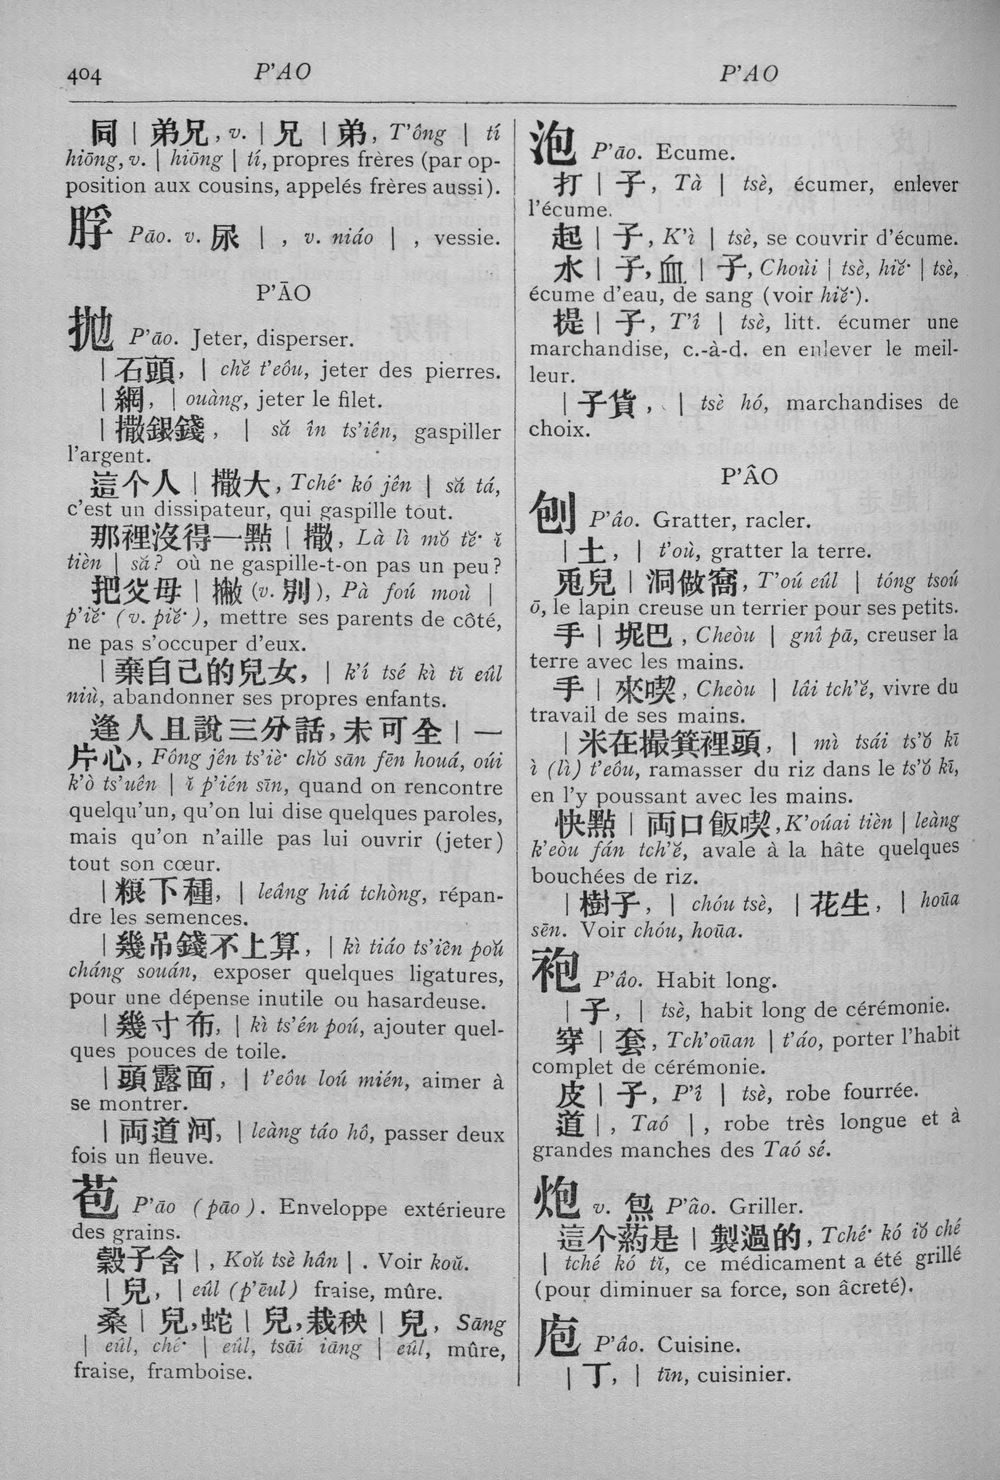 404 P’AO P’AO
同 | 弟兄, v. | 兄 | 弟, T’ông | tí
hiōng, v. | hiōng | tí, propres frères (par op-
position aux cousins, appelés frères aussi).
脬 Pāo. v. 尿 | , v. niáo | , vessie.
P’ĀO
拋 P’āo. Jeter, disperser.
| 石頭, | chĕ t’eôu, jeter des pierres.
| 網, | ouàng, jeter le filet.
| 撒銀錢, | să în ts’iên, gaspiller
l’argent.
這个人 | 撒大, Tché· kó jên | să tá,
c’est un dissipateur, qui gaspille tout.
那裡沒得一點 | 撒, Là lì mŏ tĕ· ĭ
tièn | să? où ne gaspille-t-on pas un peu?
把父母 | 撇 (v. 別), Pà foú moù |
p’iĕ· (v. piĕ·), mettre ses parents de côté,
ne pas s’occuper d’eux.
| 棄自己的兒女, | k’í tsé kì tĭ eûl
niù, abandonner ses propres enfants.
逢人且說三分話, 未可全 | 一
片心, Fông jên ts’iè· chŏ sān fēn houá, oúi
k’ò ts’uên | ĭ p’ién sīn, quand on rencontre
quelqu’un, qu’on lui dise quelques paroles,
mais qu’on n’aille pas lui ouvrir (jeter)
tout son cœur.
| 粮下種, | leâng hiá tchòng, répan-
dre les semences.
| 幾吊錢不上算, | kì tiáo ts’iên poŭ
cháng souán, exposer quelques ligatures,
pour une dépense inutile ou hasardeuse.
| 幾寸布, | kì ts’én poú, ajouter quel-
ques pouces de toile.
| 頭露面, | t’eôu loú mién, aimer à
se montrer.
| 両道河, | leàng táo hô, passer deux
fois un fleuve.
苞 P’āo (pāo). Enveloppe extérieure
des grains.
穀子含 | , Koŭ tsè hân | . Voir koŭ.
| 兒, | eûl (p’ēul) fraise, mûre.
桑 | 兒, 蛇 | 兒, 栽秧 | 兒, Sāng
| eûl, ché· | eûl, tsāi iāng | eûl, mûre,
fraise, framboise.
泡 P’āo. Ecume.
打 | 子, Tà | tsè, écumer, enlever
l’écume.
起 | 子, K’ì | tsè, se couvrir d’écume.
水 | 子, 血 | 子, Choùi | tsè, hiĕ· | tsè,
écume d’eau, de sang (voir hiĕ·).
提 | 子, T’î | tsè, litt. écumer une
marchandise, c.-à-d. en enlever le meil-
leur.
| 子貨, | tsè hó, marchandises de
choix.
P’ÂO
刨 P’âo. Gratter, racler.
| 土, | t’où, gratter la terre.
兎兒 | 洞做窩, T’oú eûl | tóng tsoú
ō, le lapin creuse un terrier pour ses petits.
手 | 坭巴, Cheòu | gnî pā, creuser la
terre avec les mains.
手 | 來喫, Cheòu | lâi tch’ĕ, vivre du
travail de ses mains.
| 米在撮箕裡頭, | mì tsái ts’ŏ kī
ì (lì) t’eôu, ramasser du riz dans le ts’ŏ kī,
en l’y poussant avec les mains.
快點 | 両口飯喫, K’oúai tièn | leàng
k’eòu fán tch’ĕ, avale à la hâte quelques
bouchées de riz.
| 樹子, | chóu tsè, | 花生, | hoūa
sēn. Voir chóu, hoūa.
袍 P’âo. Habit long.
| 子, | tsè, habit long de cérémonie.
穿 | 套, Tch’oūan | t’áo, porter l’habit
complet de cérémonie.
皮 | 子, P’î | tsè, robe fourrée.
道 | , Taó | , robe très longue et à
grandes manches des Taó sé.
炮 v. 炰 P’âo. Griller.
這个药是 | 製過的, Tché· kó iŏ ché
| tché kó tĭ, ce médicament a été grillé
(pour diminuer sa force, son âcreté).
庖 P’âo. Cuisine.
| 丁, | tīn, cuisinier.